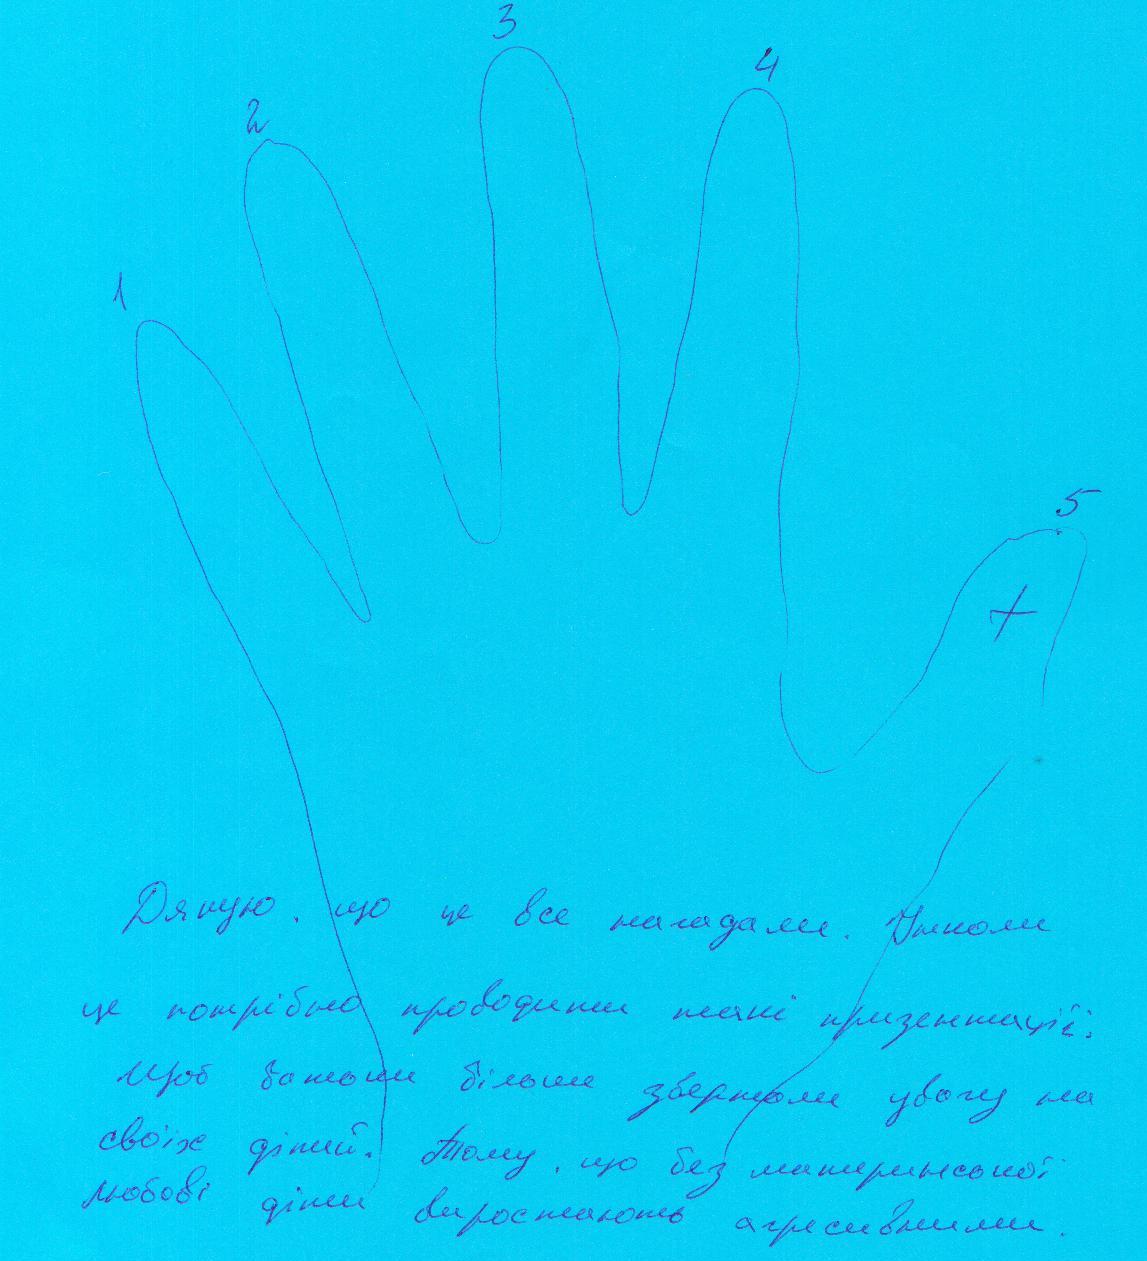 3
4
2
1
5
+
Дякую, що це все нагадали. Інколи
це потрібно проводити такі призентації.
Щоб батьки більше звертали увагу на
своїх дітий. Тому, що без материнської
любові діти виростають агресивними.